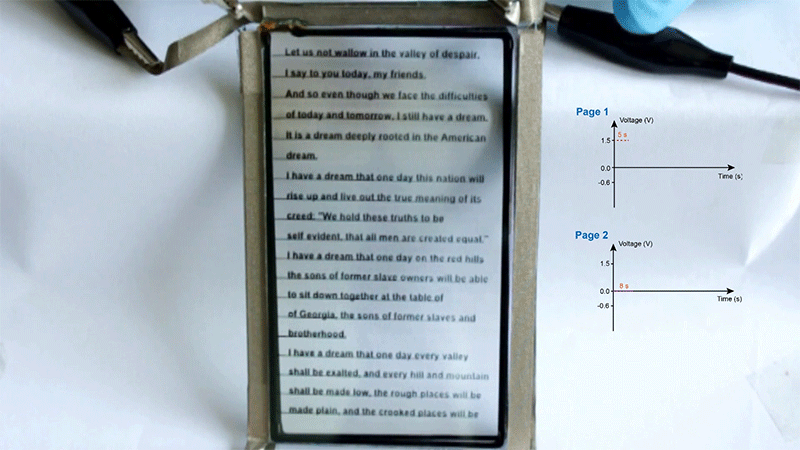 Let us not wallow in the valley of despair,
I say to you today, my friends.
And so even though we face the difficulties
of today and tomorrow, I still have a dream.
It is a dream deeply rooted in the American
dream.
I have a dream that one day this nation will
rise up and live out the true meaning of its
creed: "We hold these truths to be
self evident, that all men are created equal."
I have a dream that one day on the red hills
the sons of former slave owners will be able
to sit down together at the table of
of Georgia, the sons of former slaves and
brotherhood.
I have a dream that one day every valley
shall be exalted, and every hill and mountain
shall be made low, the rough places will be
made plain, and the crooked places will be
Page 1
Voltage (V)
5 s
1.5
0.0
-0.6
Time (s)
Page 2
Voltage (V)
1.5
8 s
0.0
-0.6
Time (s)